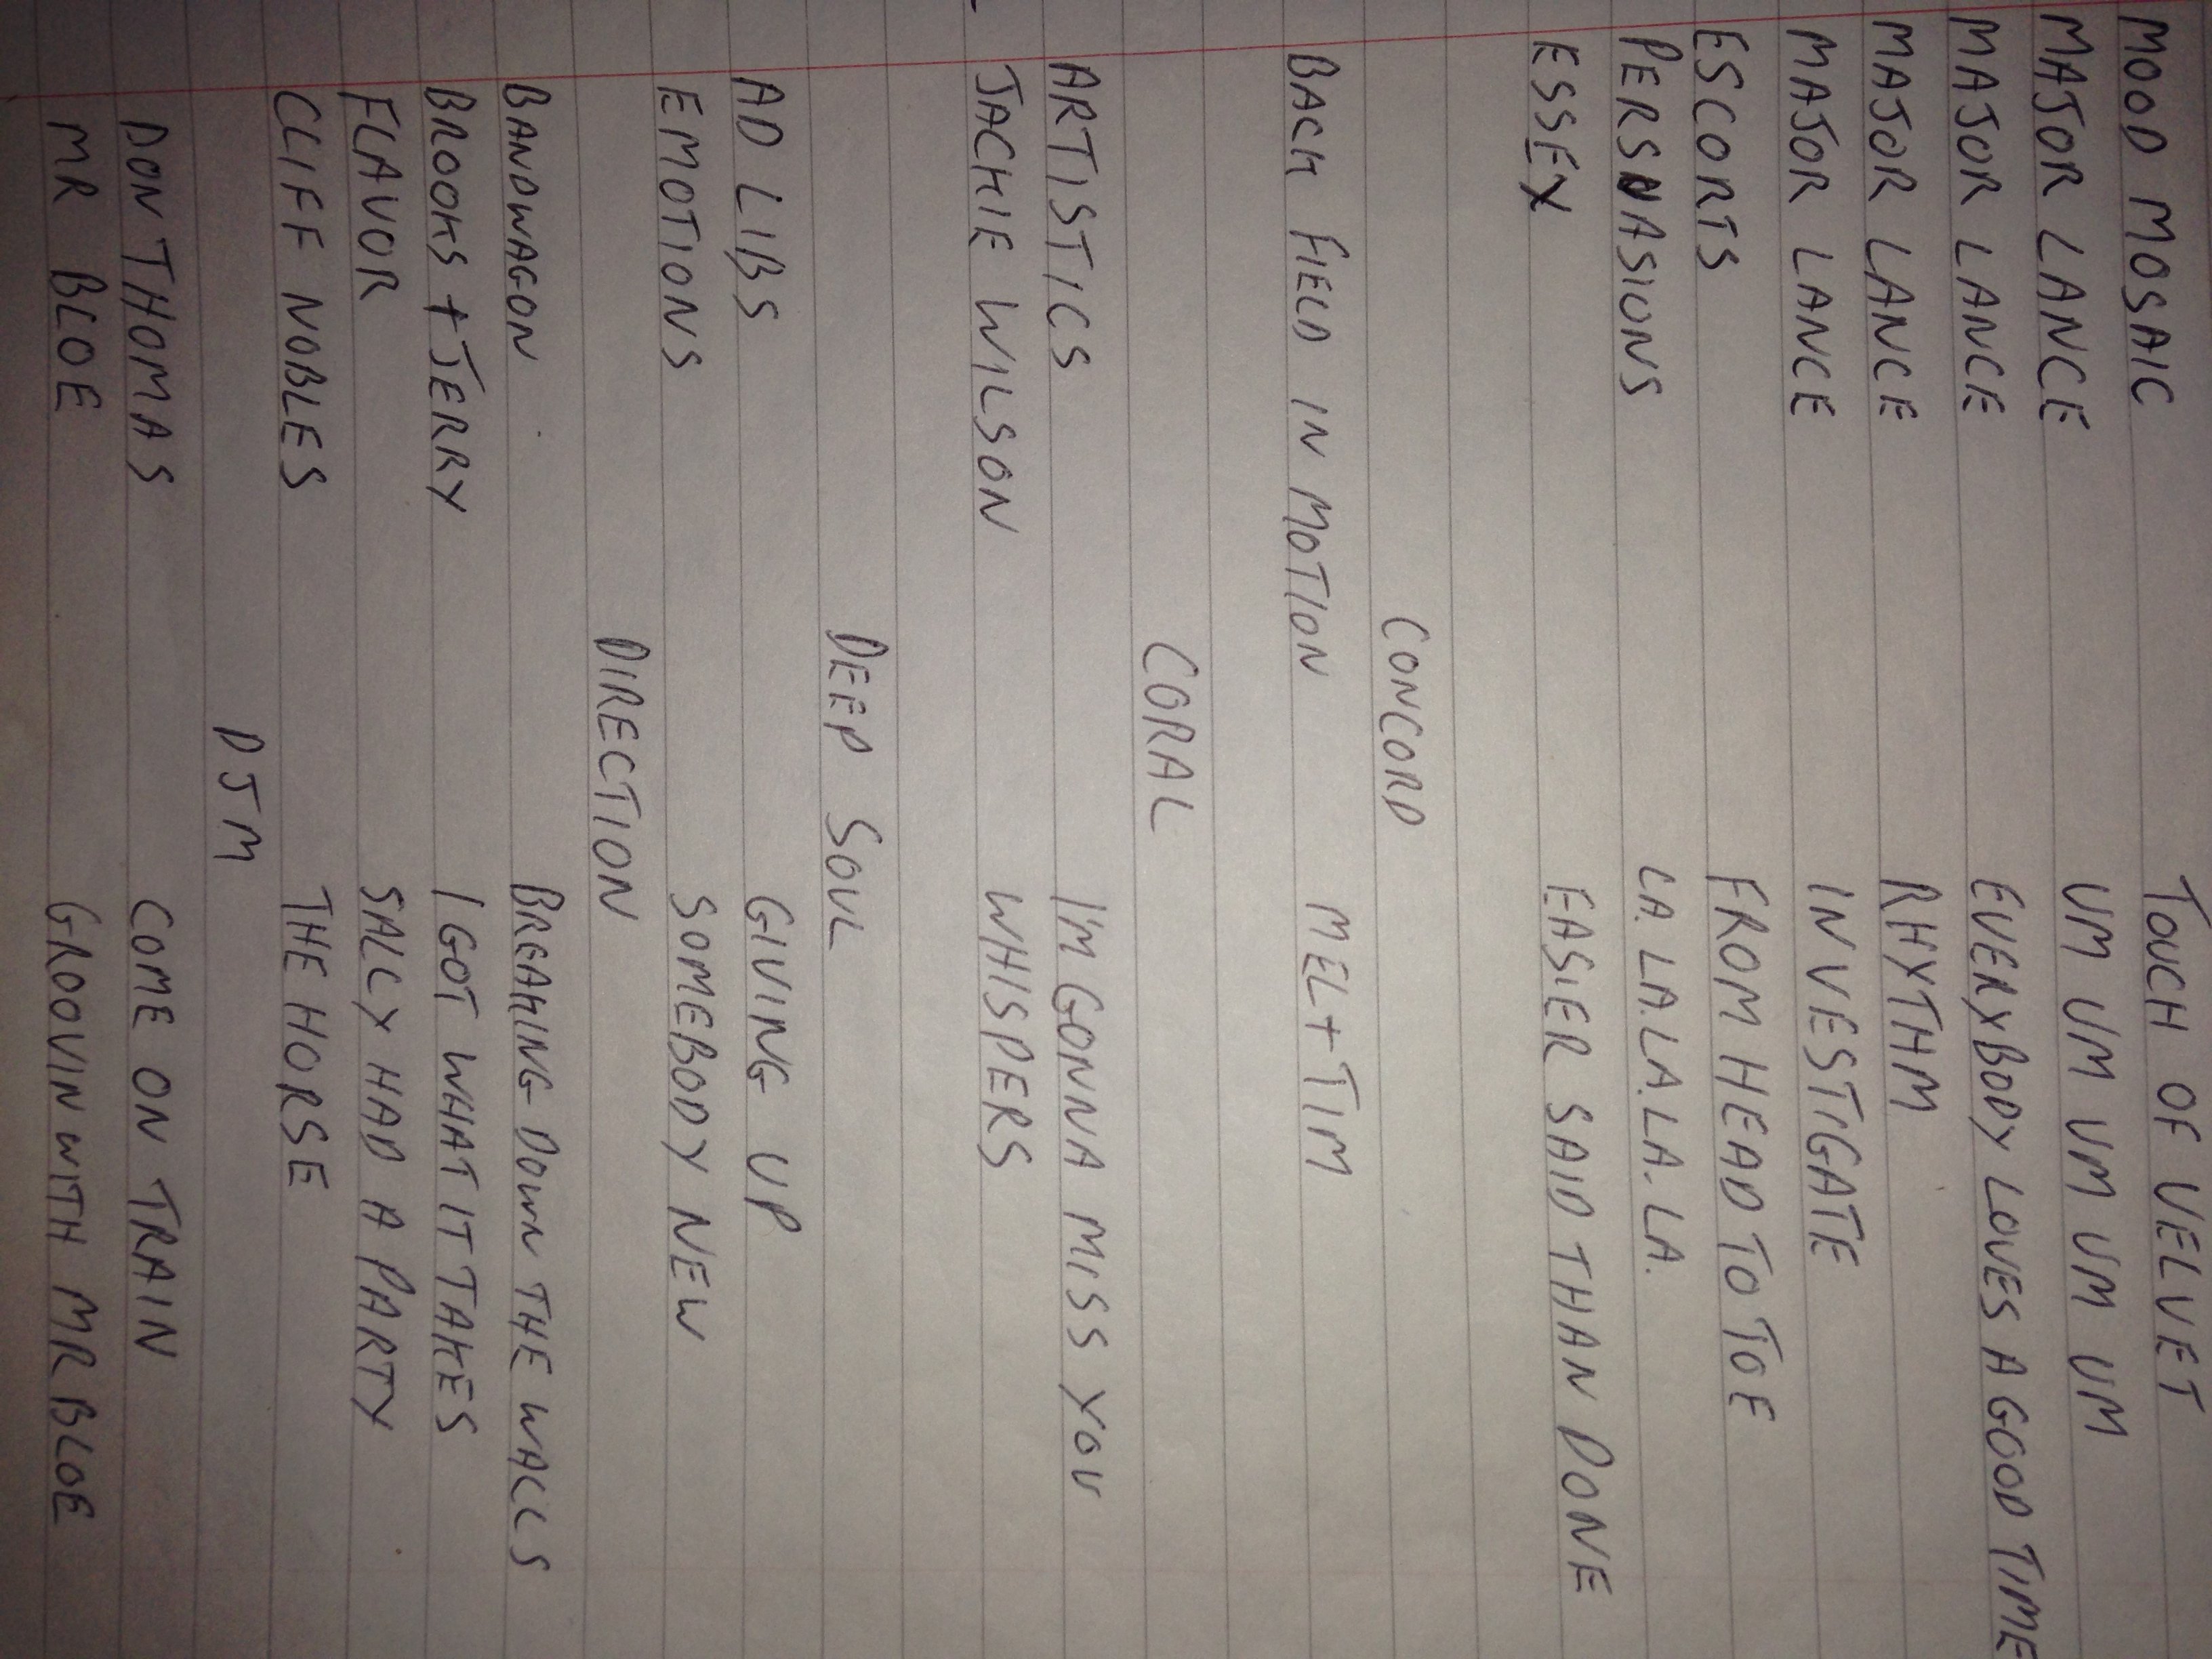 MOOD MOSAIC TOUCH OF VELVET
MAJOR LANCE UM UM UM UM UM UM
MAJOR LANCE EVERYBODY LOVES A GOOD TIME
MAJOR LANCE RHYTHM
MAJOR LANCE INVESTIGATE
ESCORTS FROM HEAD TO TOE
PERSUASIONS LA. LA. LA. LA. LA. LA. LA.
ESSEX EASIER SAID THAN DONE
CONCORD
BACK FIELD IN MOTION MEL + TIM
CORAL
ARTISTICS I'M GONNA MISS YOU
JACKIE WILSON WHISPERS
DEEP SOUL
AD LIBS GIVING UP
EMOTIONS SOMEBODY NEW
DIRECTION
BANDWAGON BREAKING DOWN THE WALLS
BROOKS + JERRY I GOT WHAT IT TAKES
FLAVOR SALLY HAD A PARTY
CLIFF NOBLES THE HORSE
DJM
DON THOMAS COME ON TRAIN
MR BLOE GROOVIN WITH MR BLOE